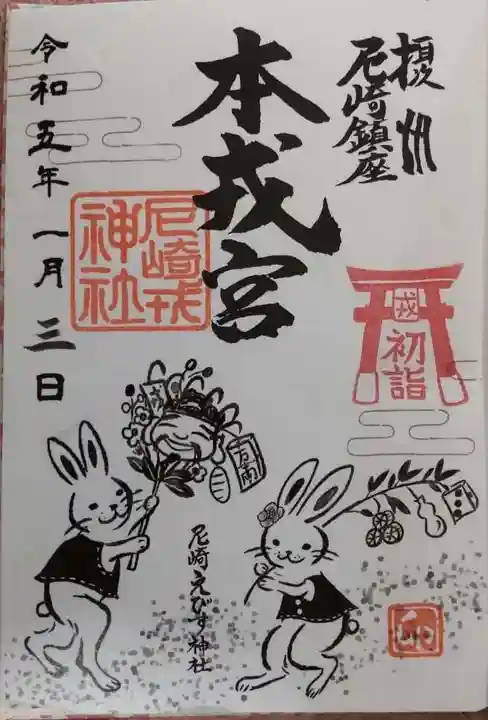 摂州
尼崎鎮座
本戎宮
尼崎戎
神社
戎
初詣
令和五年一月三日
尼崎えびす神社
卯